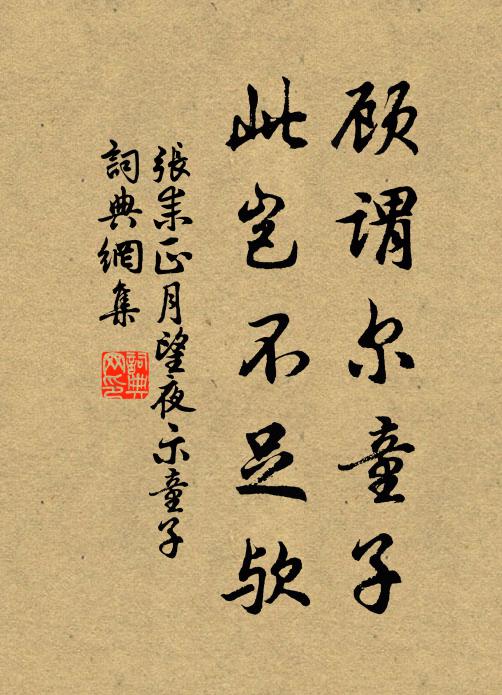 顾谓尔童子
此岂不足欤
張耒正月望夜示童子
詞典網集
詞典网印